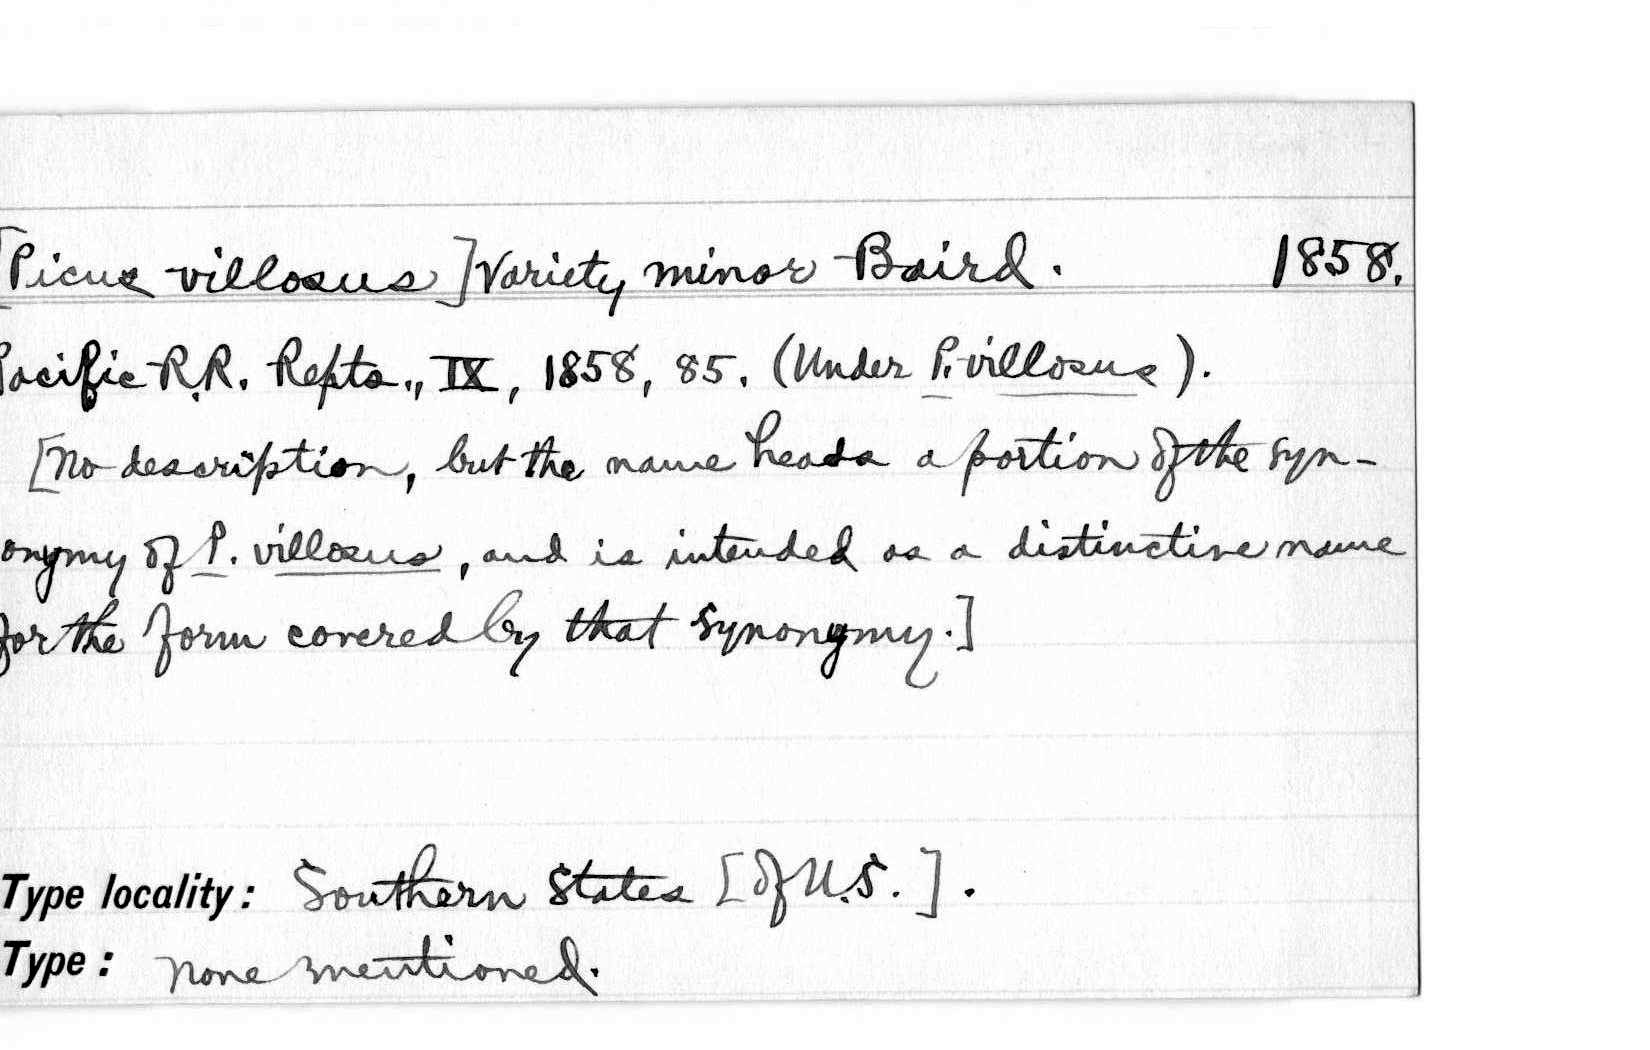 [Picus villosus] Variety minor Baird. 1858.
Pacific R.R. Repts., IX, 1858, 85. (Under P. villosus).
[No description, but the name heads a portion of the syn-
onymy of P. villosus, and is intended as a distinctive name
for the form covered by that synonymy.]
Type locality: Southern States [of U.S.].
Type: none mentioned.